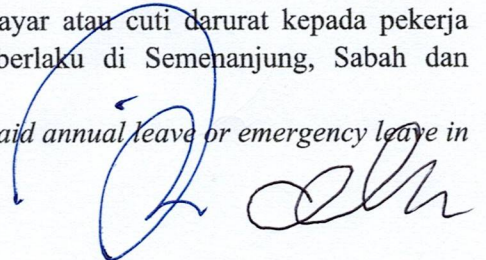 ayar atau cuti darurat kepada pekerja
berlaku di Semenanjung, Sabah dan
aid annual leave or emergency leave in